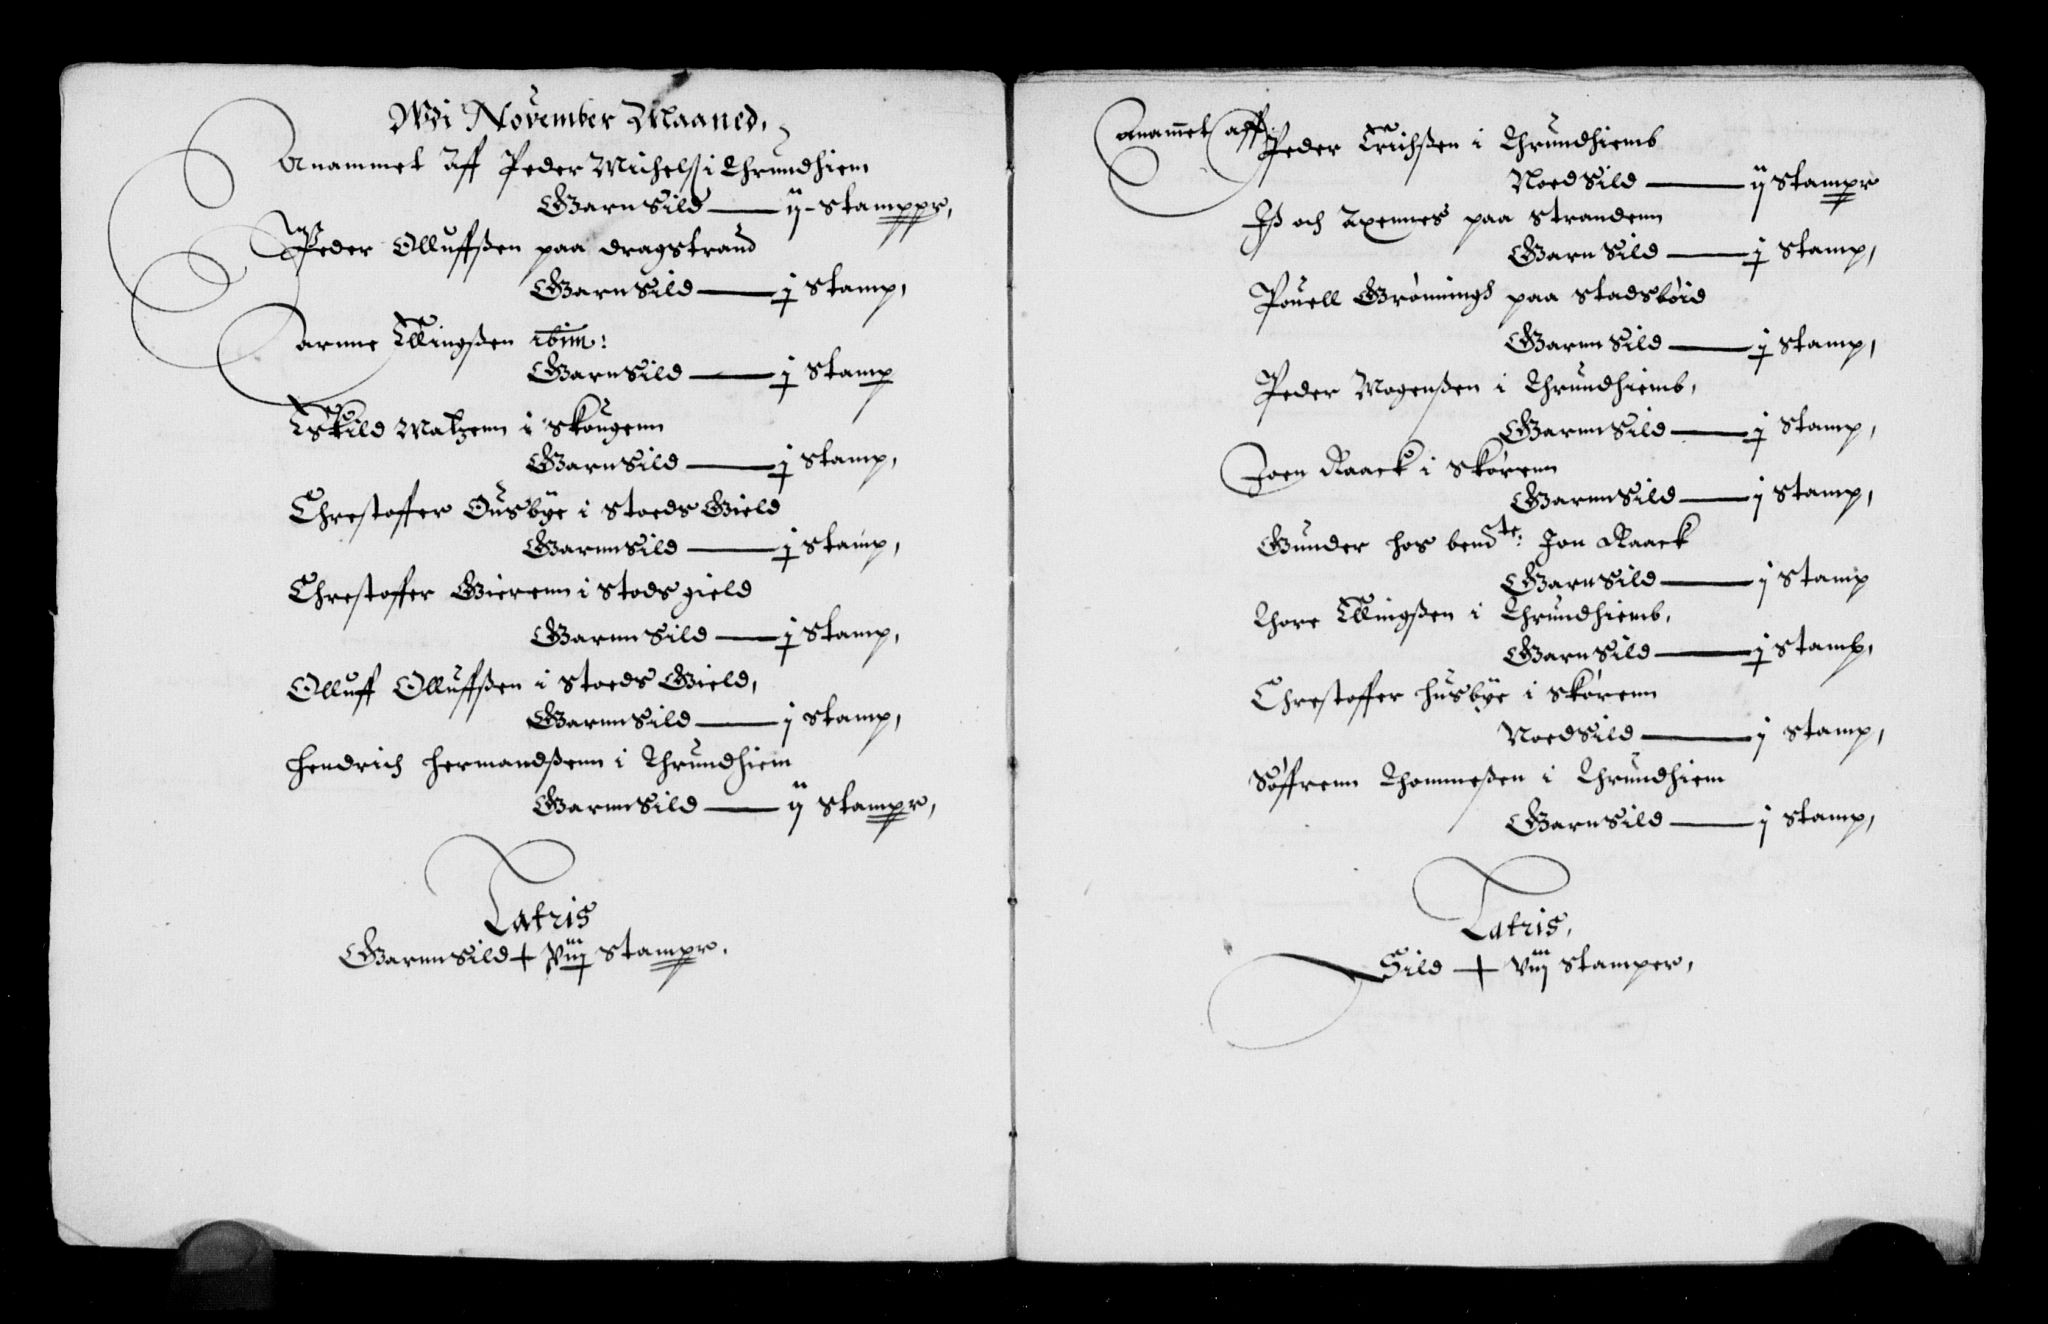 Wdi November Maaned,
Anammet Aff Peder Michelß i Thrundhiem
Garn Sild — ij - Stamppr,
Peder Olluffßen paa dragstrand
Garn Sild — j Stamp,
arnne Ellingßen ibim:
Garn Sild — j Stamp
Eskild Matzenn i Skougenn
Garn Sild — j Stamp,
Chrestoffer Ousbye i Stoeds Gield
Garnn Sild — j Stamp,
Chrestoffer Gierenn i Stods gield
Garnn Sild — j Stamp,
Olluff Olluffßen i Stoeds Gield,
Garnn Sild — j Stamp,
Hendrich Hermandßenn i Thrundhiem
Garnn Sild — ij Stampr,
Latris
Garnn Sild + viij Stampr.
Anammet aff Peder Erichßen i Thrundhiemb
Noed Sild — ij Stampr
Iß och Axennes paa Strandenn
Garn Sild — j Stamp,
Pouell Grønnings paa Stadsbøid
Garnn Sild — j Stamp,
Peder Mogenßen i Thrundhiemb,
Garnn Sild — j Stamp,
Joen Raack i Skørenn
Garnn Sild — j Stamp,
Gunder hos bemte: Jon Raack
Garn Sild — j Stamp
Thore Ellingßen i Thrundhiemb,
Garn Sild — j Stamp,
Chrestoffer Husbye i Skørenn
Noed Sild — j Stamp,
Søffrenn Thommeßen i Thrundhiem
Garn Sild — j Stamp,
Latris,
Sild + viij Stamper,